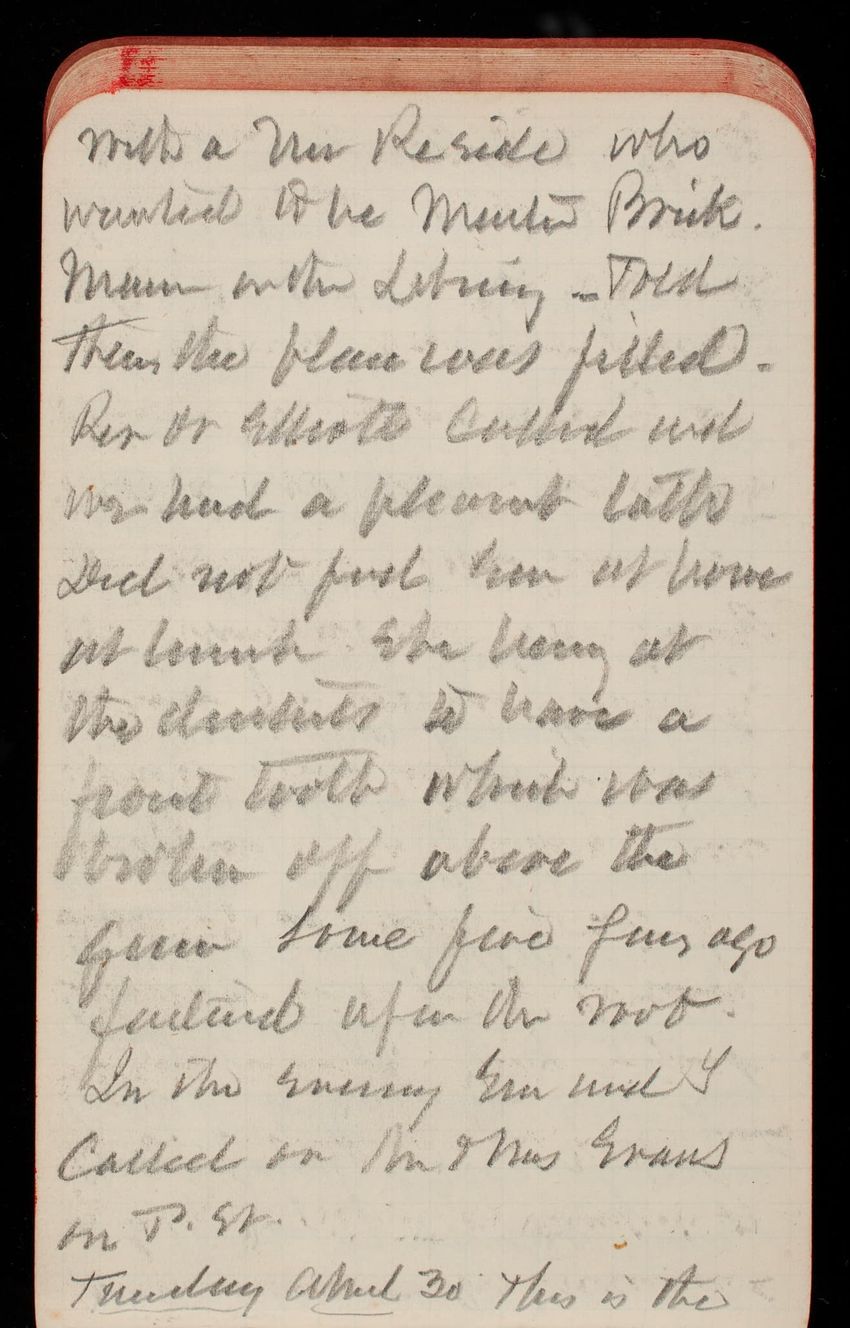 with a Mr Reside who
wanted to be Master Brick.
Mason on the Library - Told
them the place was filled -
Rev Dr Elliott Called and
we had a pleasant talk
Did not find Em at home
at lunch She being at
the dentists to have a
front tooth which was
broken off above the
gum some five years ago
fastend upon the root.
In the evening Em and I
Called on Mr & Mrs Evans
on P. St.
Tuesday April 30 This is the